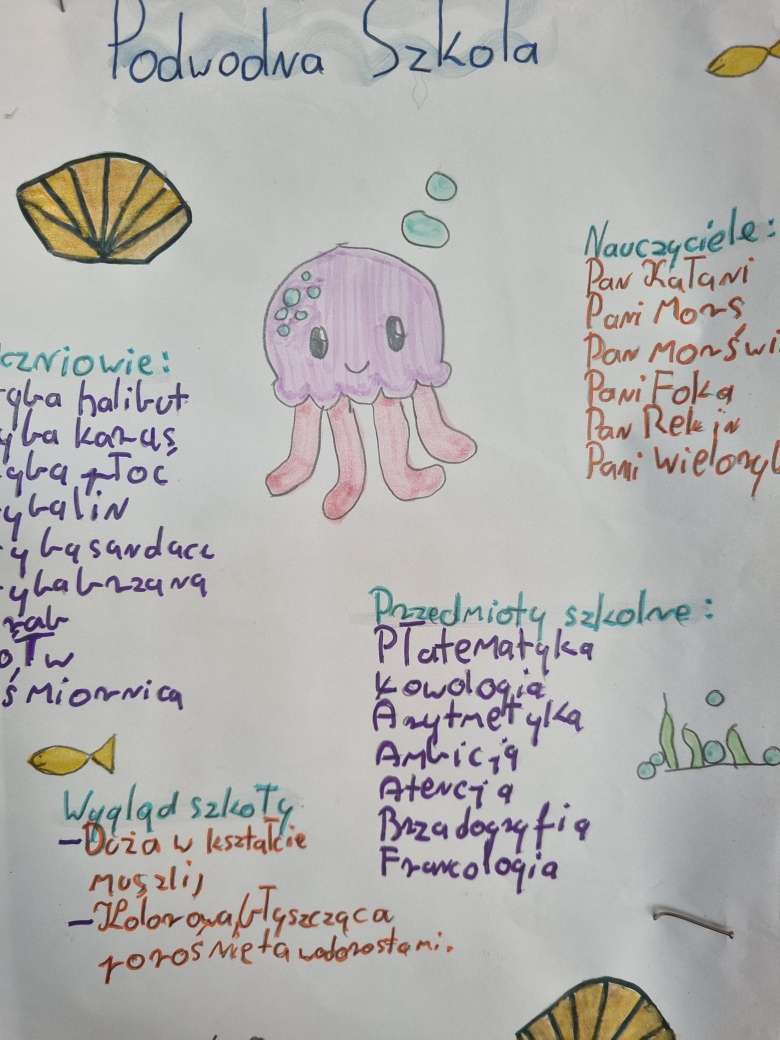 Podwodna Szkola
Nauczyciele:
Pan Kałani
Pani Mors
Pan Morświ
Pani Foka
Pan Rekin
Pani Wieloryb
czniowie:
yba halibut
yba karaś
yba płoć
yba lin
yba sandacz
yba brzana
żab
ółw
śmiornica
Przedmioty szkolne:
Płatematyka
Kowologia
Arytmetyka
Ambicja
Atencja
Brzadografia
Francologia
Wygląd szkoły
-Duża w kształcie
muszlij
-Kolorowa, błyszcząca
porośnięta wodorostami.